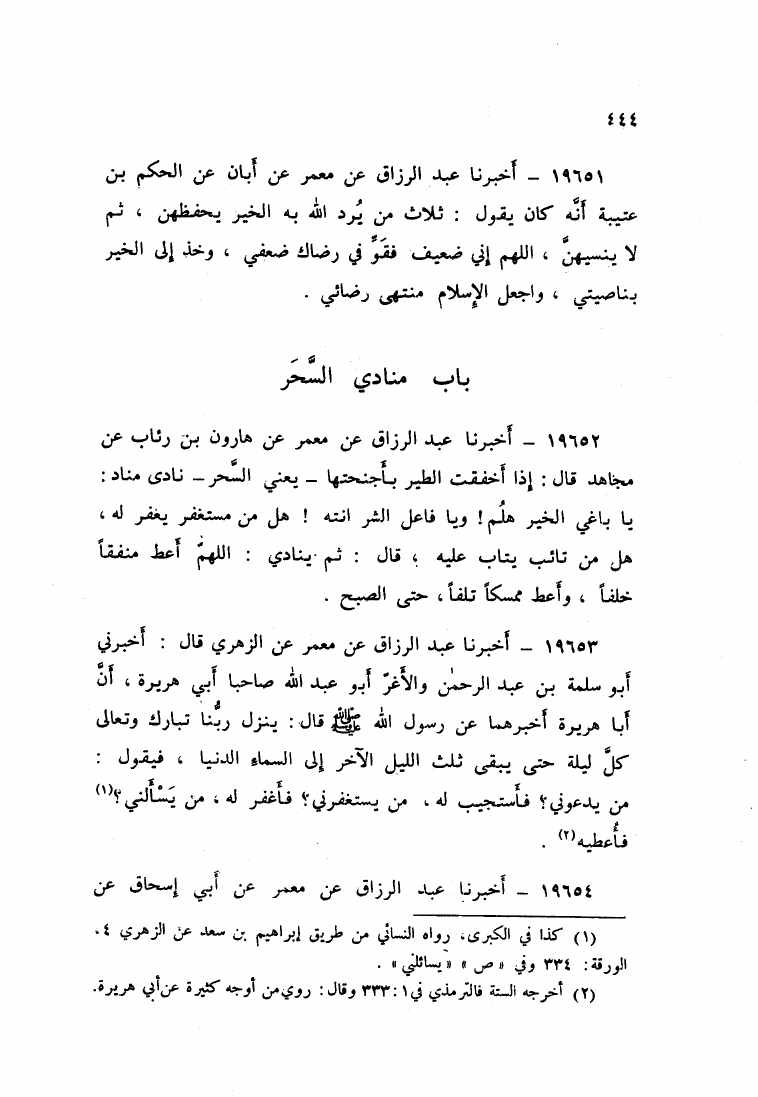 ٤٤٤
١٩٦٥١ – أخبرنا عبد الرزاق عن معمر عن أبان عن الحكم بن
عتيبة أنَّه كان يقول : ثلاث من يُرد الله به الخير يحفظهن ، ثم
لا ينسيهنَّ ، اللهم إني ضعيف فقَوِّ في رضاك ضعفي ، وخذ إلى الخير
بناصيتي ، واجعل الإسلام منتهى رضائي .
باب منادي السَّحَر
١٩٦٥٢ – أخبرنا عبد الرزاق عن معمر عن هارون بن رئاب عن
مجاهد قال : إذا أخفقت الطير بأجنحتها – يعني السَّحر – نادى مناد :
يا باغي الخير هلُم! ويا فاعل الشر انته ! هل من مستغفر يغفر له ،
هل من تائب يتاب عليه ، قال : ثم ينادي : اللهمَّ أعط منفقاً
خلفاً ، وأعط ممسكاً تلفاً ، حتى الصبح .
١٩٦٥٣ – أخبرنا عبد الرزاق عن معمر عن الزهري قال : أخبرني
أبو سلمة بن عبد الرحمٰن والأغرّ أبو عبد الله صاحبا أبي هريرة ، أنَّ
أبا هريرة أخبرهما عن رسول الله ﷺ قال : ينزل ربُّنا تبارك وتعالى
كلَّ ليلة حتى يبقى ثلث الليل الآخر إلى السماء الدنيا ، فيقول :
من يدعوني؟ فأستجيب له ، من يستغفرني؟ فأغفر له ، من يَسْألني؟(١)
فأُعطيه(٢) .
١٩٦٥٤ – أخبرنا عبد الرزاق عن معمر عن أبي إسحاق عن
(١) كذا في الكبرى، رواه النسائي من طريق إبراهيم بن سعد عن الزهري ٤،
الورقة: ٣٣٤ وفي « ص » «يسائلني» .
(٢) أخرجه الستة فالترمذي في ١ : ٣٣٣ وقال : روي من أوجه كثيرة عن أبي هريرة.